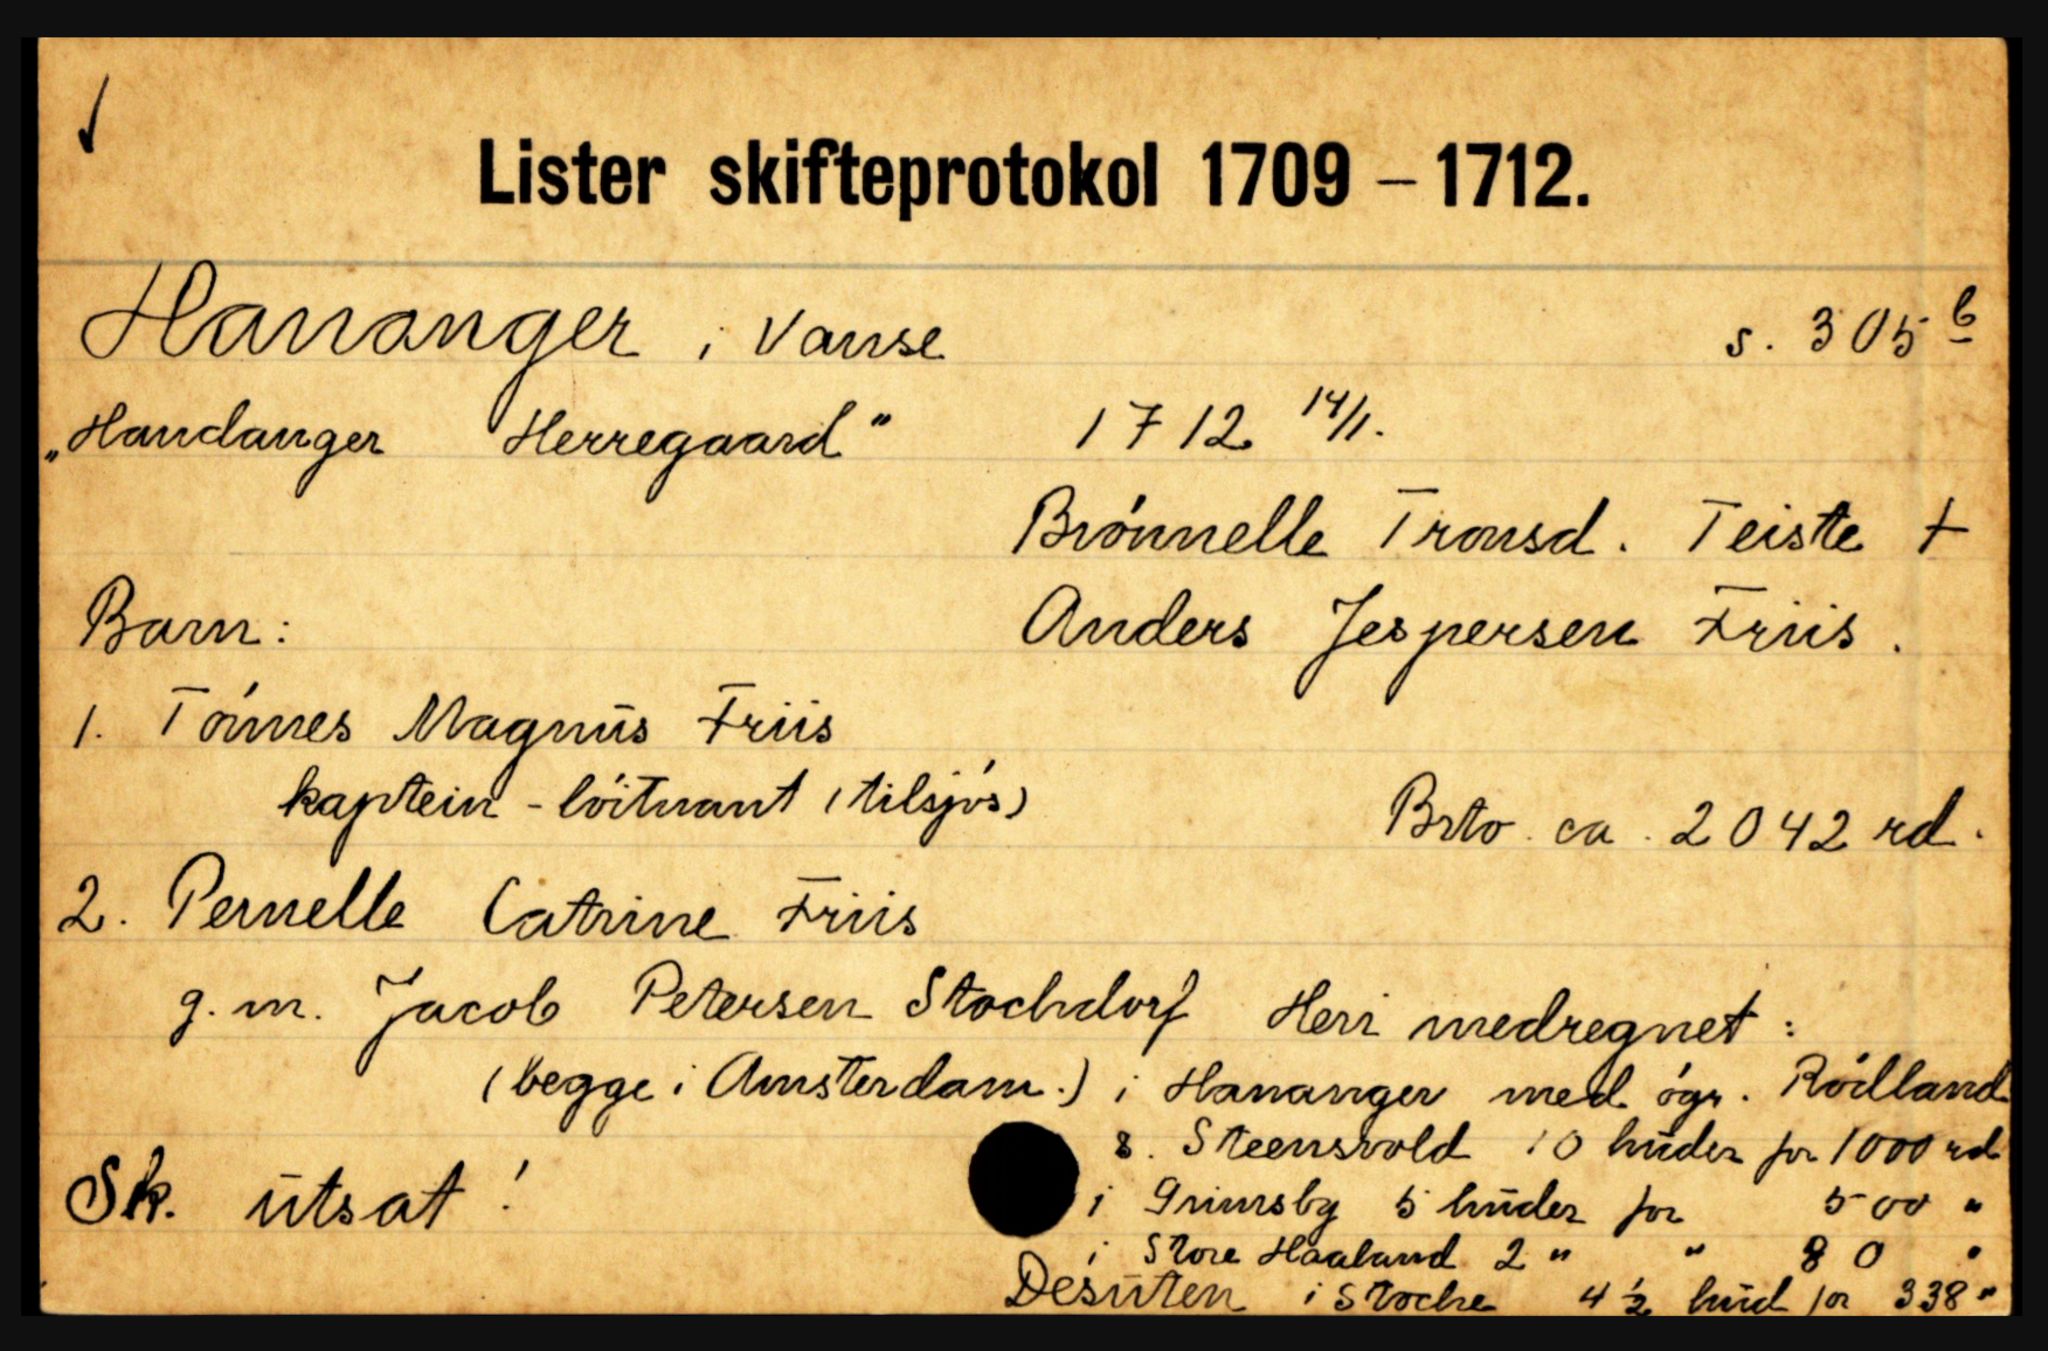 Lister skifteprotokol 1709 – 1712.
Hananger i Vanse s. 305 b
„Handanger Herregaard" 1712 14/1.
Brónnelle Tronsd. Teiste †
Barn: Anders Jespersen Friis.
1. Tónnes Magnus Friis
kaptein - lóitnant (tilsjós) Brto. ca. 2042 rd.
2. Pernelle Catrine Friis
g. m. Jacob Petersen Stochdorf Heri medregnet:
(begge i Amsterdam.) i Hananger med ógr. Ródland
& Steensvold 10 huder for 1000 rd
Sk. utsat! i Grimsby 5 huder for 500 "
i Store Haaland 2 " " 80 "
Desuten i Stocke 4 ½ hud for 338 "